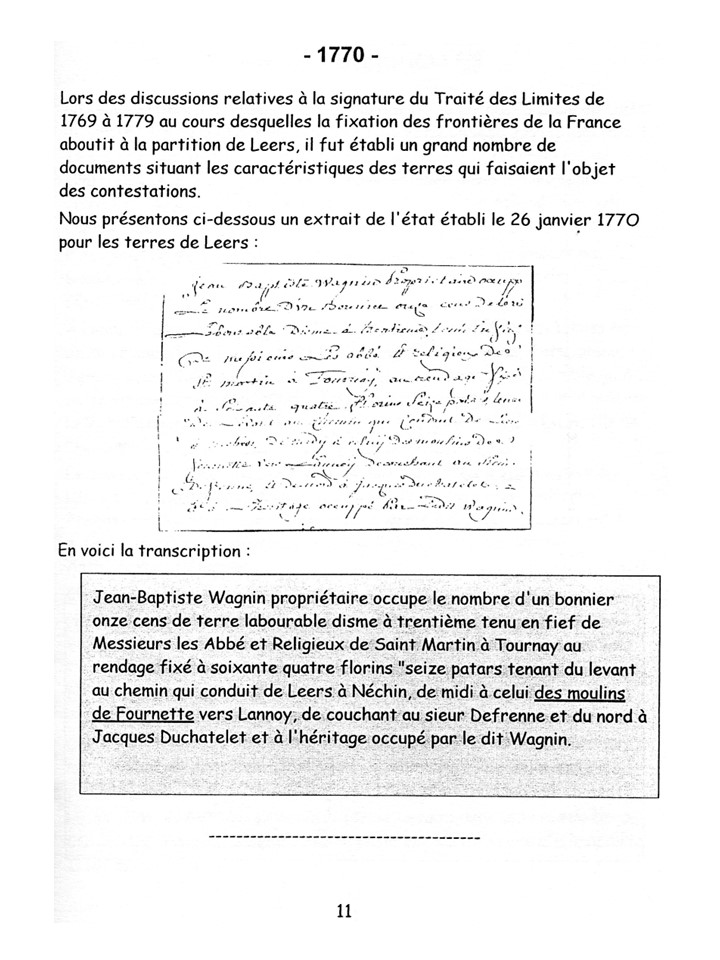 - 1770 -
Lors des discussions relatives à la signature du Traité des Limites de
1769 à 1779 au cours desquelles la fixation des frontières de la France
aboutit à la partition de Leers, il fut établi un grand nombre de
documents situant les caractéristiques des terres qui faisaient l'objet
des contestations.
Nous présentons ci-dessous un extrait de l'état établi le 26 janvier 1770
pour les terres de Leers :
jean Baptiste Wagnin Proprietaire occupe
Le nombre D'un Bonnier onze cens De terre
Labourable Disme à trentieme tenu en fief
De messieurs Les abbé & religieux De
St martin à Tournay au rendage fixé
à soixante quatre florins seize patars tenant
De Levant au chemin qui conduit De Leers
à nechin, De midy à celuy Des moulins De
fournette vers Lannoy De couchant au sieur
Defrenne, & De nord à jacques Duchatelet
heritage occuppé Par Ledit Wagnin.
En voici la transcription :
Jean-Baptiste Wagnin propriétaire occupe le nombre d'un bonnier
onze cens de terre labourable disme à trentième tenu en fief de
Messieurs les Abbé et Religieux de Saint Martin à Tournay au
rendage fixé à soixante quatre florins "seize patars tenant du levant
au chemin qui conduit de Leers à Néchin, de midi à celui des moulins
de Fournette vers Lannoy, de couchant au sieur Defrenne et du nord à
Jacques Duchatelet et à l'héritage occupé par le dit Wagnin.
----------------------------------------
11